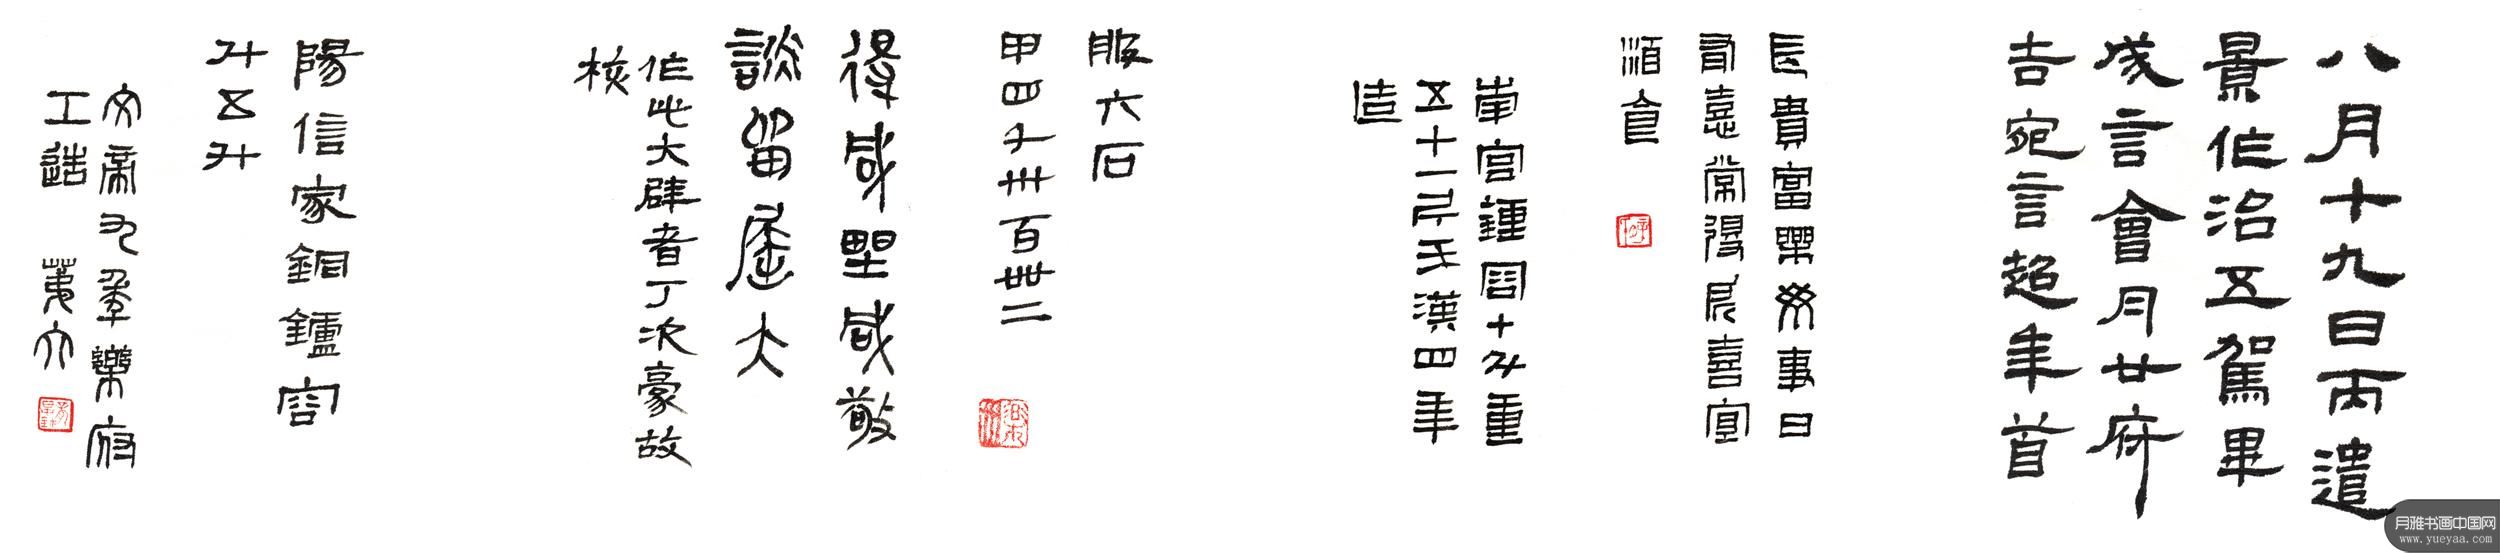 八月十九日丙遣
景作治五駕畢
成言會月廿府
吉宛言超年首
長貴富樂毋事日
有憙常得所喜宜
酒食
南宮鍾容十斗重
五十一斤天漢四年
造
服六石
甲四千卅百卌二
得咸野咸敬
談留
大
作此大辟者丁次豪故
核
陽信家銅鑪容
斗五升
文帝九年樂府
工造
月雅书画中国网
www.yueyaa.com